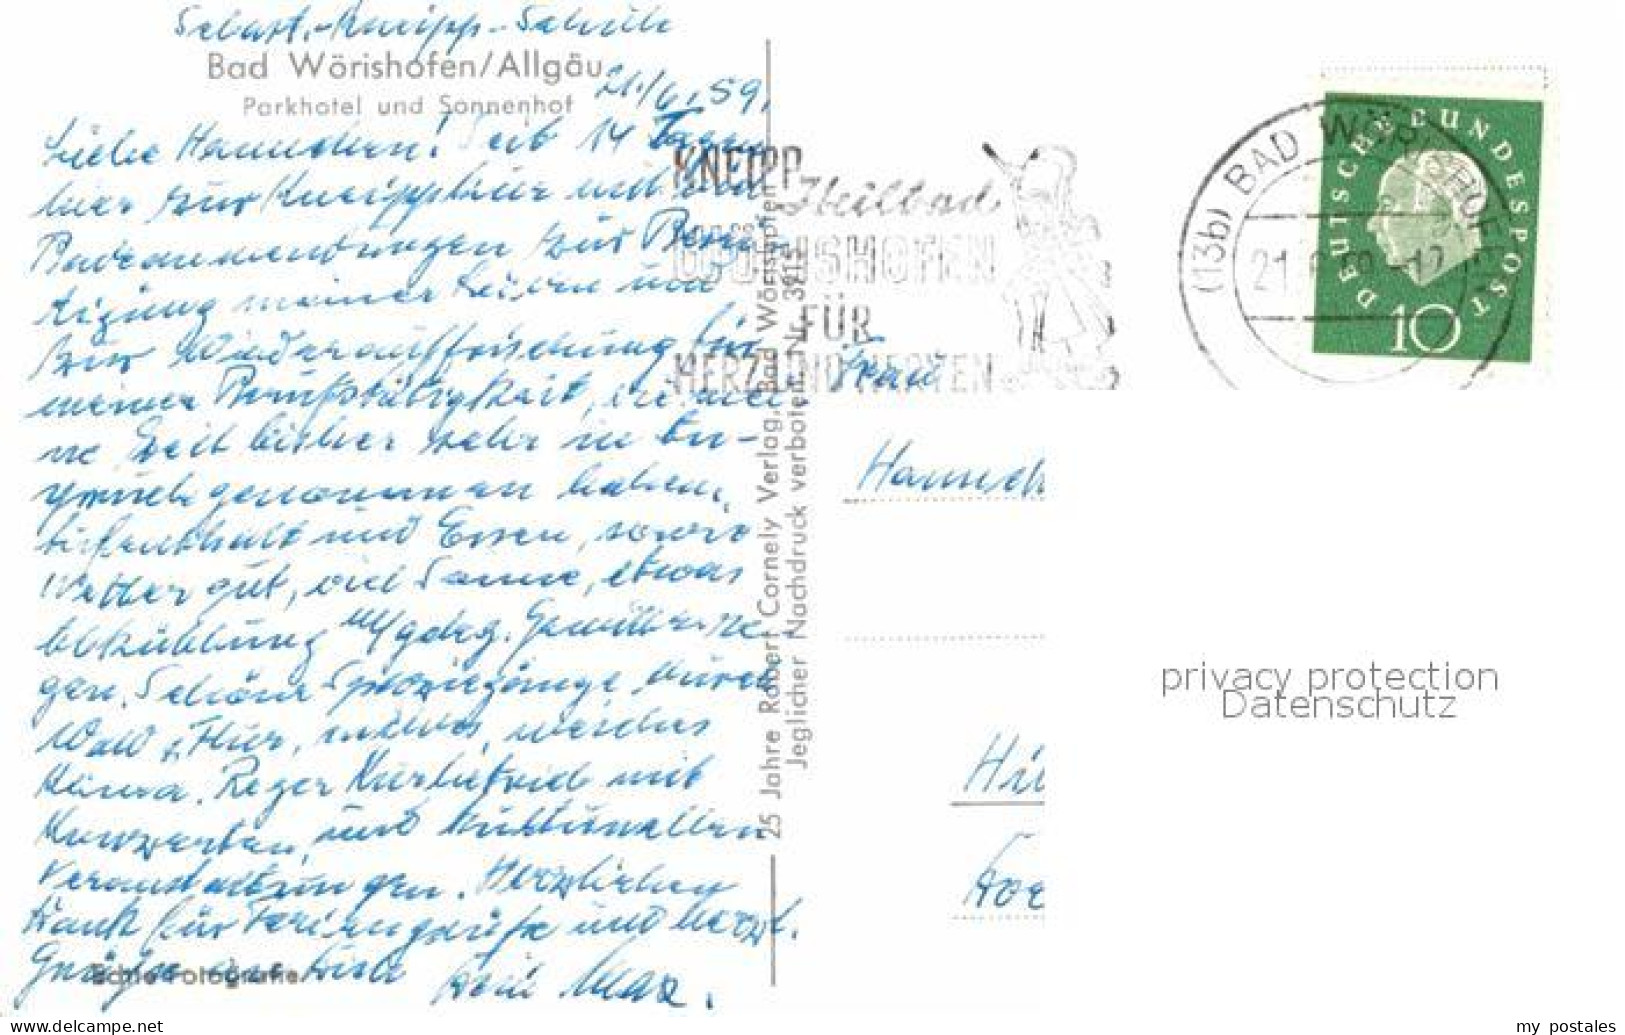 Sebast.-Kneipp-Schule
Bad Wörishofen/Allgäu
Parkhotel und Sonnenhof
21./6.59.
Liebe Hannchen! Seit 14 Tagen
hier zur Kneippkur und
Badeanwendungen zur Besei-
tigung meiner Leiden und
zur Wiederauffrischung für
meine Berufstätigkeit, die mei-
ne Zeit bisher sehr in An-
spruch genommen haben.
Aufenthalt und Essen, sowie
Wetter gut, viel Sonne, etwas
Abkühlung Gewitterre-
gen. Schöne Spaziergänge durch
Wald u. Flur,
Klima. Reger Kurbetrieb mit
Konzerten, und kulturellen
Veranstaltungen. Herzlichen
Dank für Feriengrüße und herzl.
Grüße
Dein Max.
Echte Fotografie
25 Jahre Robert Cornely Verlag, Bad Wörishofen
Jeglicher Nachdruck verboten. Nr. 3915
KNEIPP
Heilbad
WÖRISHOFEN
FÜR
HERZ UND NERVEN
(13b) BAD WÖRISHOFEN
21.6.59-17
DEUTSCHE BUNDESPOST
10
Frau
Hannch
Hil
privacy protection
Datenschutz
my postales